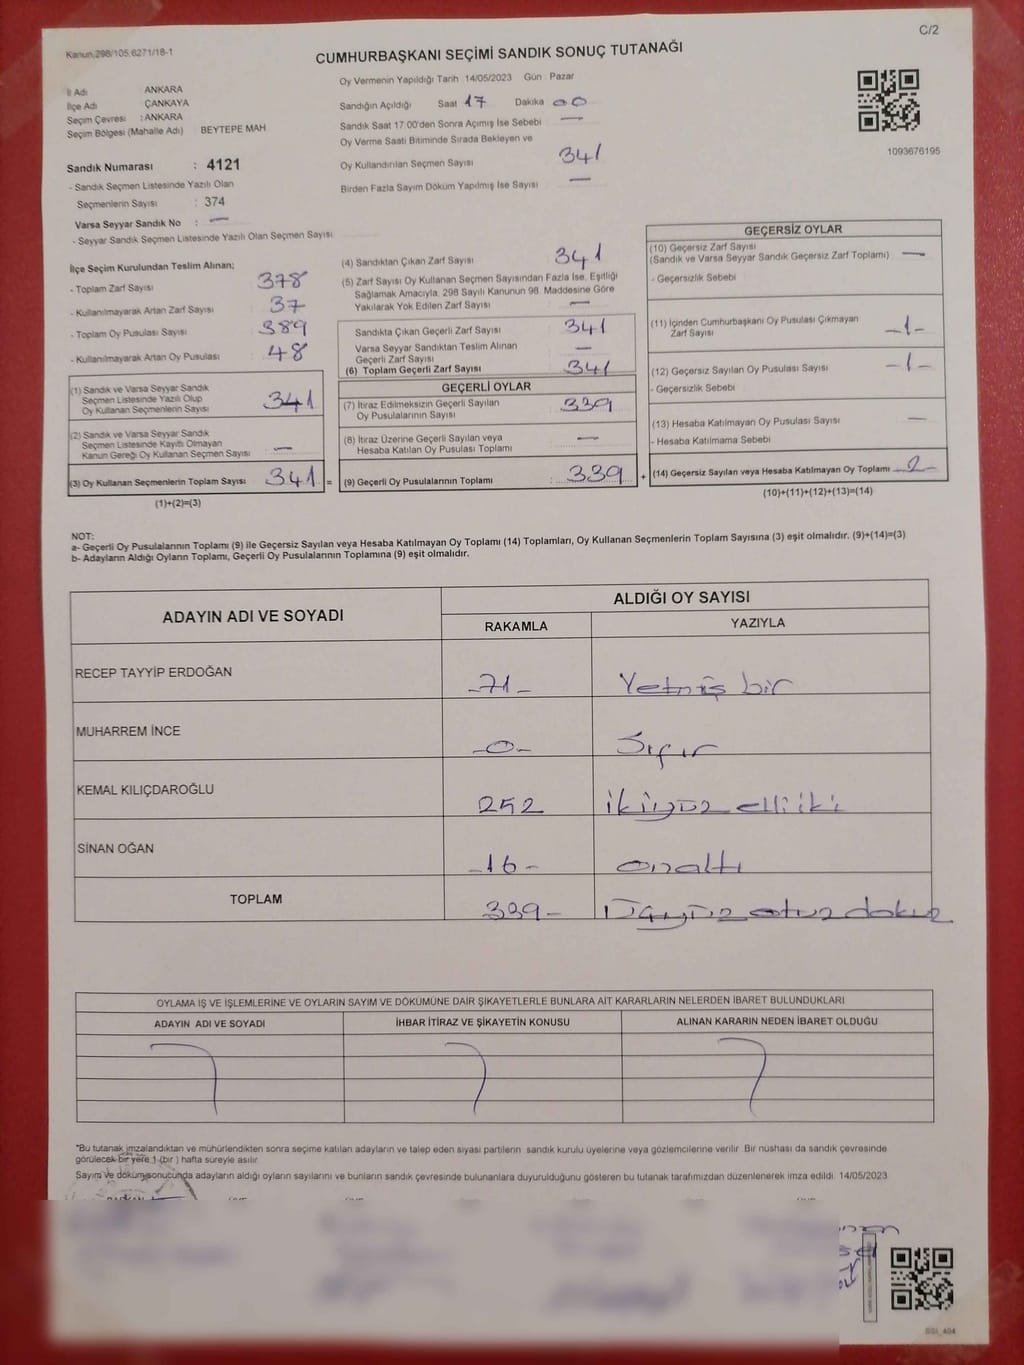 C/2
Kanun:298/105.6271/18-1
CUMHURBAŞKANI SEÇİMİ SANDIK SONUÇ TUTANAĞI
İl Adı ANKARA
İlçe Adı ÇANKAYA
Seçim Çevresi : ANKARA
Seçim Bölgesi (Mahalle Adı) BEYTEPE MAH
Sandık Numarası : 4121
- Sandık Seçmen Listesinde Yazılı Olan
Seçmenlerin Sayısı : 374
Varsa Seyyar Sandık No : —
- Seyyar Sandık Seçmen Listesinde Yazılı Olan Seçmen Sayısı
Oy Vermenin Yapıldığı Tarih 14/05/2023 Gün Pazar
Sandığın Açıldığı Saat 17 Dakika 00
Sandık Saat 17:00'den Sonra Açımış İse Sebebi —
Oy Verme Saati Bitiminde Sırada Bekleyen ve
Oy Kullandırılan Seçmen Sayısı 341
Birden Fazla Sayım Döküm Yapılmış İse Sayısı —
1093676195
İlçe Seçim Kurulundan Teslim Alınan;
- Toplam Zarf Sayısı : 378
- Kullanılmayarak Artan Zarf Sayısı : 37
- Toplam Oy Pusulası Sayısı : 389
- Kullanılmayarak Artan Oy Pusulası : 48
(1) Sandık ve Varsa Seyyar Sandık
Seçmen Listesinde Yazılı Olup
Oy Kullanan Seçmenlerin Sayısı 341
(2) Sandık ve Varsa Seyyar Sandık
Seçmen Listesinde Kayıtlı Olmayan
Kanun Gereği Oy Kullanan Seçmen Sayısı —
(3) Oy Kullanan Seçmenlerin Toplam Sayısı 341 =
(1)+(2)=(3)
(4) Sandıktan Çıkan Zarf Sayısı 341
(5) Zarf Sayısı Oy Kullanan Seçmen Sayısından Fazla İse, Eşitliği
Sağlamak Amacıyla, 298 Sayılı Kanunun 98. Maddesine Göre
Yakılarak Yok Edilen Zarf Sayısı —
Sandıkta Çıkan Geçerli Zarf Sayısı 341
Varsa Seyyar Sandıktan Teslim Alınan
Geçerli Zarf Sayısı —
(6) Toplam Geçerli Zarf Sayısı 341
GEÇERLİ OYLAR
(7) İtiraz Edilmeksizin Geçerli Sayılan
Oy Pusulalarının Sayısı 339
(8) İtiraz Üzerine Geçerli Sayılan veya
Hesaba Katılan Oy Pusulası Toplamı —
(9) Geçerli Oy Pusulalarının Toplamı : 339 +
GEÇERSİZ OYLAR
(10) Geçersiz Zarf Sayısı
(Sandık ve Varsa Seyyar Sandık Geçersiz Zarf Toplamı) —
- Geçersizlik Sebebi
(11) İçinden Cumhurbaşkanı Oy Pusulası Çıkmayan
Zarf Sayısı -1-
(12) Geçersiz Sayılan Oy Pusulası Sayısı -1-
- Geçersizlik Sebebi
(13) Hesaba Katılmayan Oy Pusulası Sayısı —
- Hesaba Katılmama Sebebi
(14) Geçersiz Sayılan veya Hesaba Katılmayan Oy Toplamı -2-
(10)+(11)+(12)+(13)=(14)
NOT:
a- Geçerli Oy Pusulalarının Toplamı (9) ile Geçersiz Sayılan veya Hesaba Katılmayan Oy Toplamı (14) Toplamları, Oy Kullanan Seçmenlerin Toplam Sayısına (3) eşit olmalıdır. (9)+(14)=(3)
b- Adayların Aldığı Oyların Toplamı, Geçerli Oy Pusulalarının Toplamına (9) eşit olmalıdır.
ADAYIN ADI VE SOYADI ALDIĞI OY SAYISI
RAKAMLA YAZIYLA
RECEP TAYYİP ERDOĞAN -71- Yetmiş bir
MUHARREM İNCE -0- Sıfır
KEMAL KILIÇDAROĞLU 252 ikiyüz elli iki
SİNAN OĞAN -16- onaltı
TOPLAM 339- Üçyüz otuz dokuz
OYLAMA İŞ VE İŞLEMLERİNE VE OYLARIN SAYIM VE DÖKÜMÜNE DAİR ŞİKAYETLERLE BUNLARA AİT KARARLARIN NELERDEN İBARET BULUNDUKLARI
ADAYIN ADI VE SOYADI İHBAR İTİRAZ VE ŞİKAYETİN KONUSU ALINAN KARARIN NEDEN İBARET OLDUĞU
*Bu tutanak imzalandıktan ve mühürlendikten sonra seçime katılan adayların ve talep eden siyasi partilerin sandık kurulu üyelerine veya gözlemcilerine verilir. Bir nüshası da sandık çevresinde
görülecek bir yere 1 (bir) hafta süreyle asılır.
Sayım ve döküm sonucunda adayların aldığı oyların sayılarını ve bunların sandık çevresinde bulunanlara duyurulduğunu gösteren bu tutanak tarafımızdan düzenlenerek imza edildi. 14/05/2023